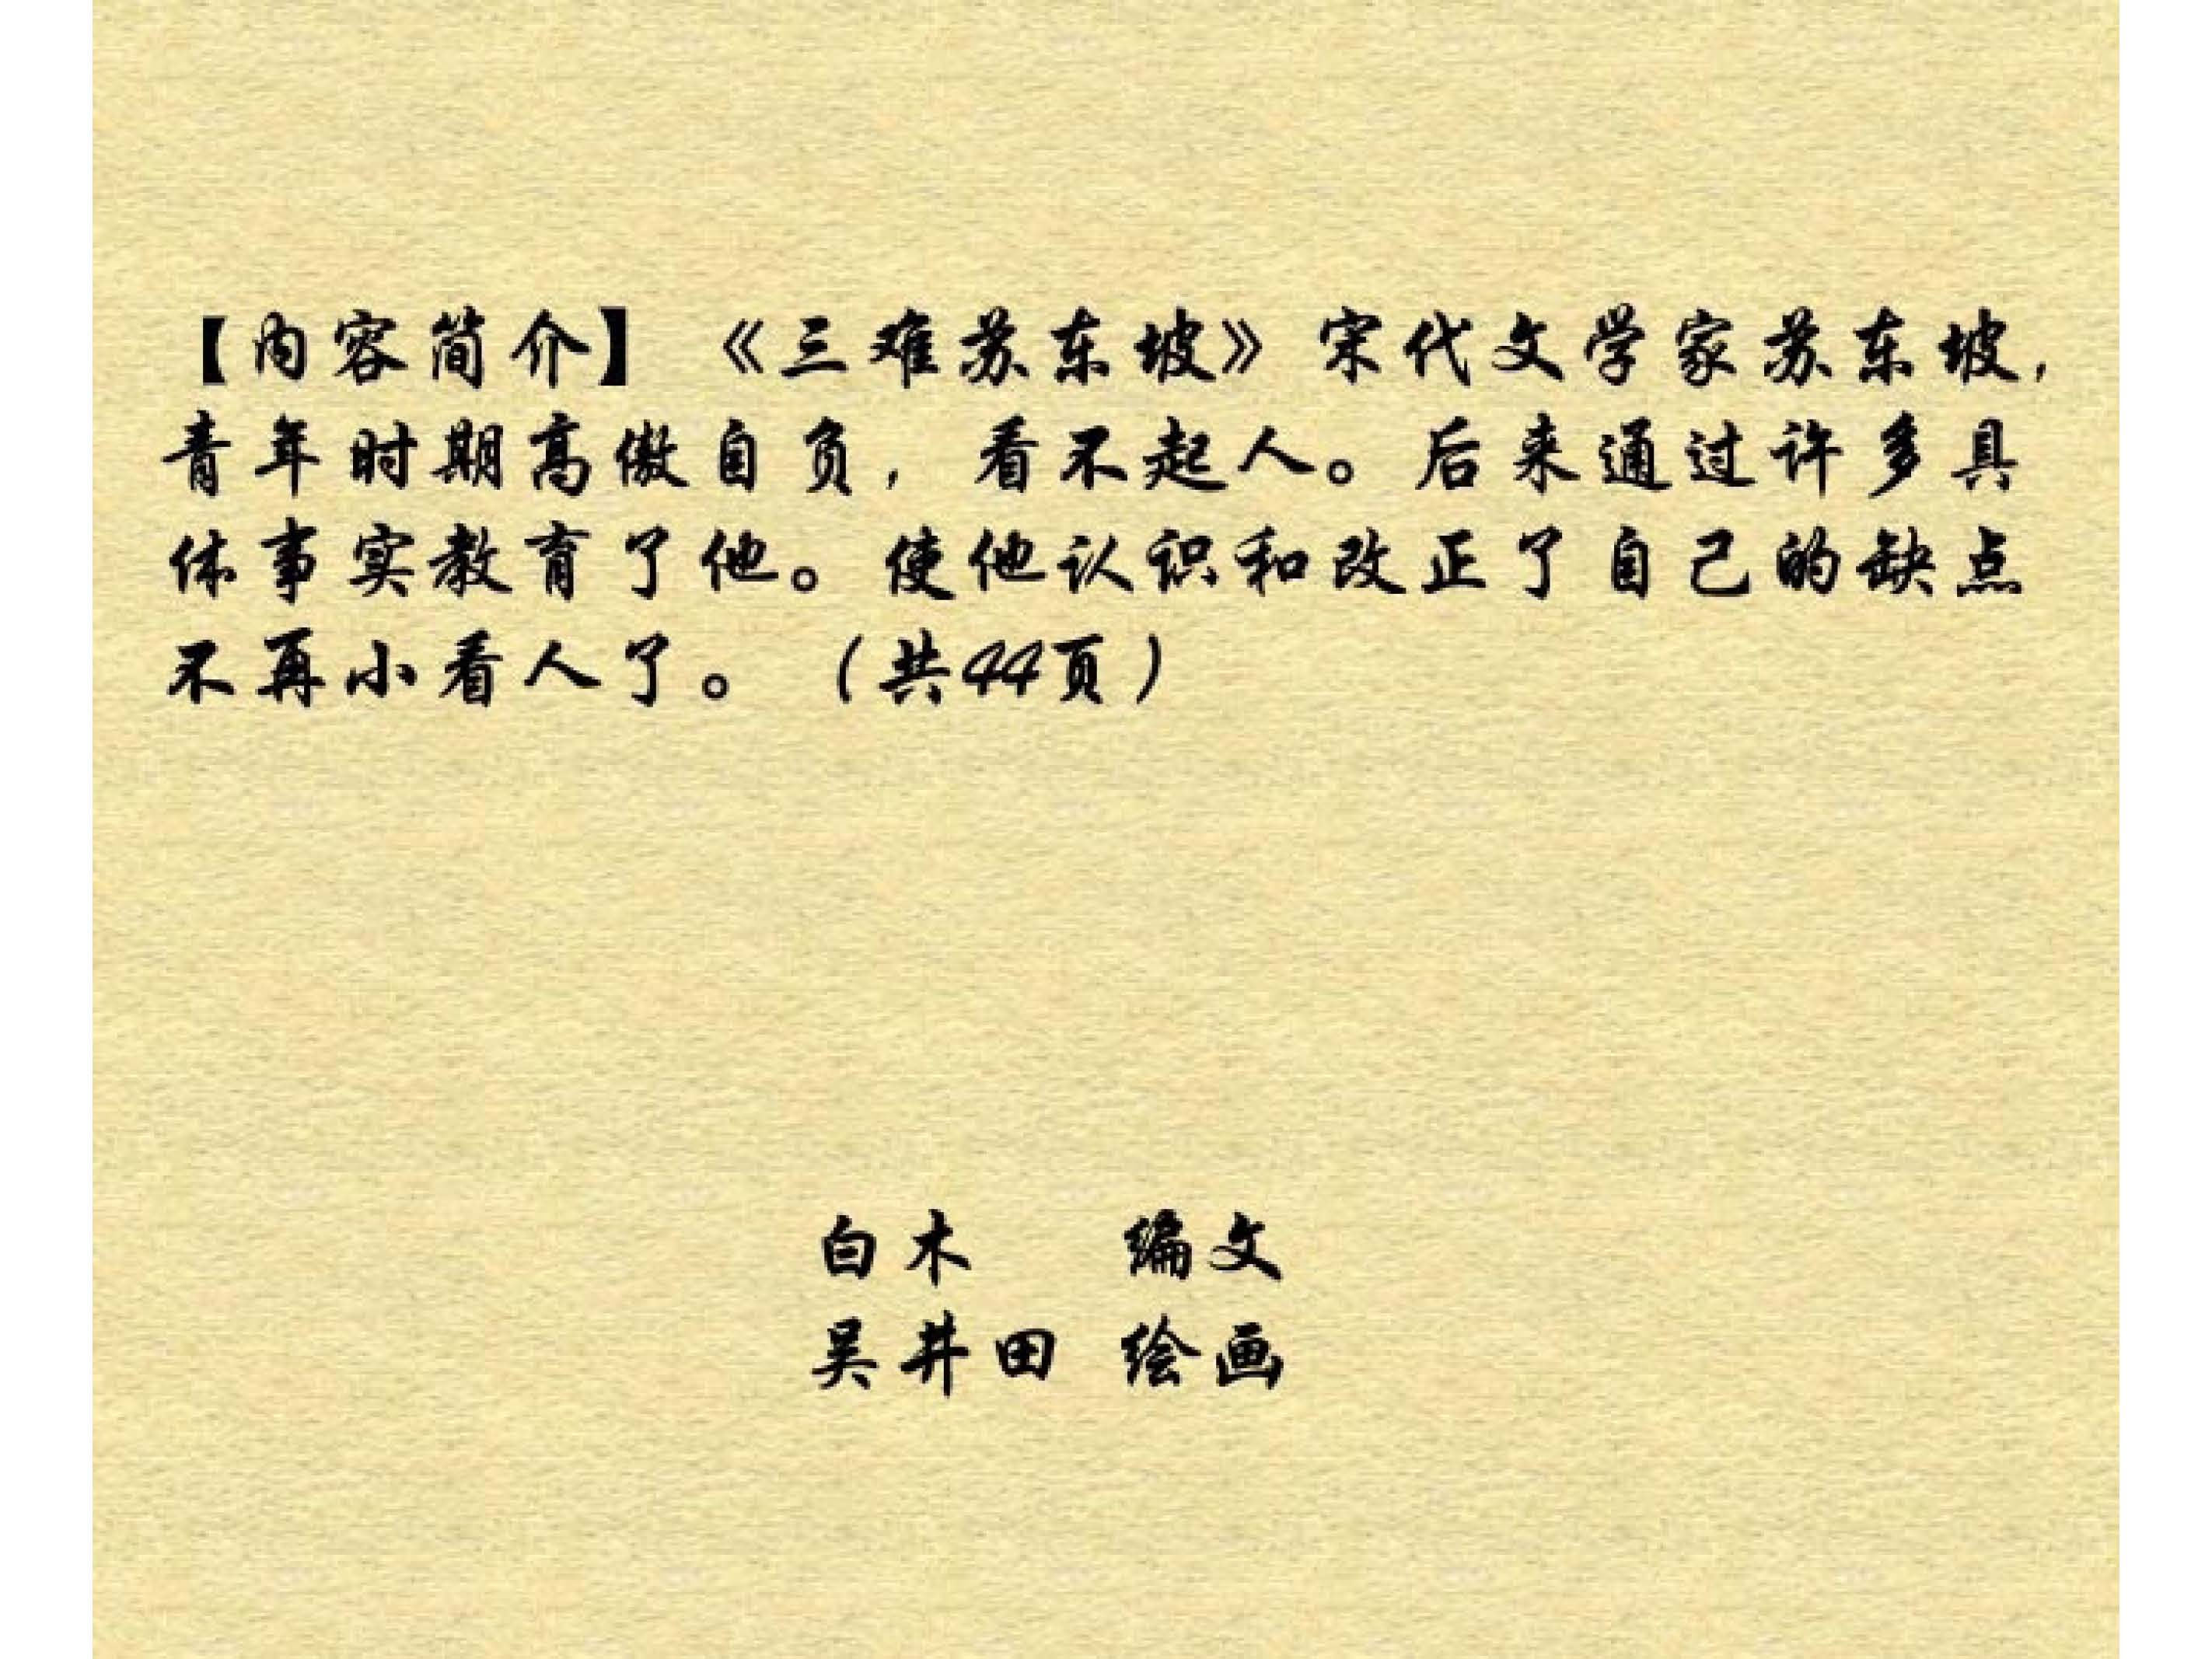 【内容简介】《三难苏东坡》宋代文学家苏东坡,
青年时期高傲自负，看不起人。后来通过许多具
体事实教育了他。使他认识和改正了自己的缺点
不再小看人了。（共44页）
白木 编文
吴井田 绘画